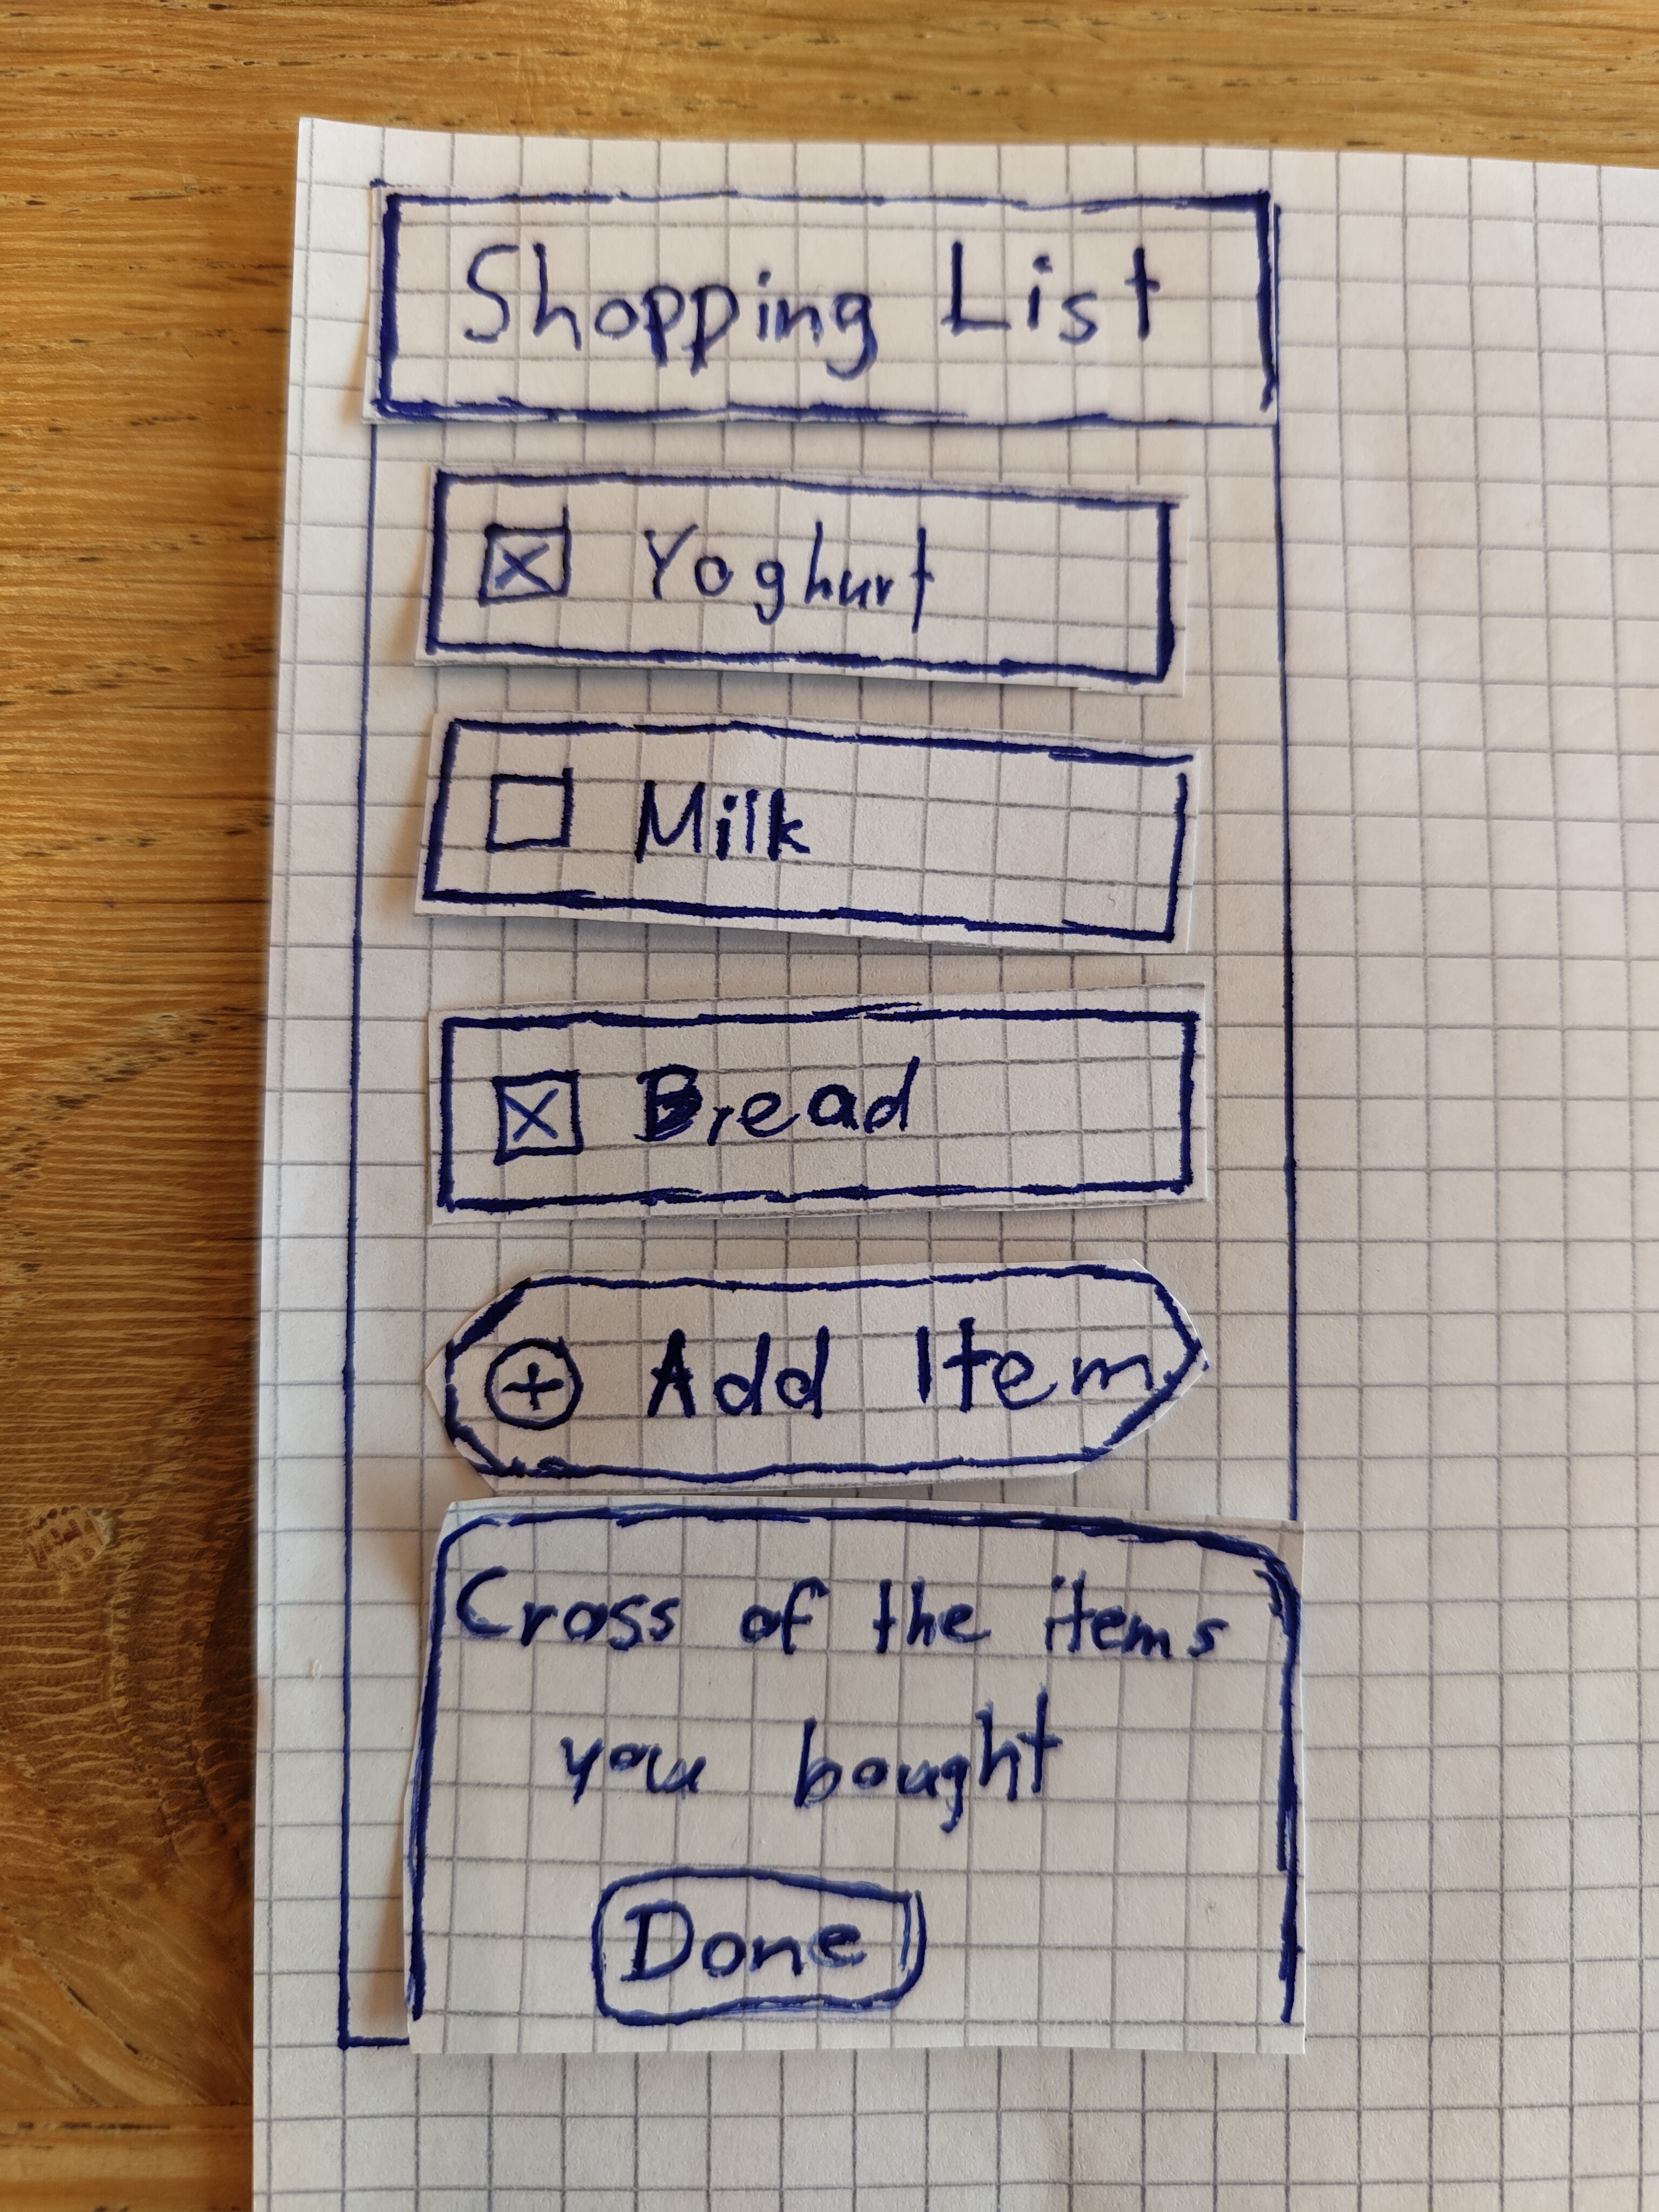 Shopping List
Yoghurt
Milk
Bread
Add Item
Cross of the items
you bought
Done